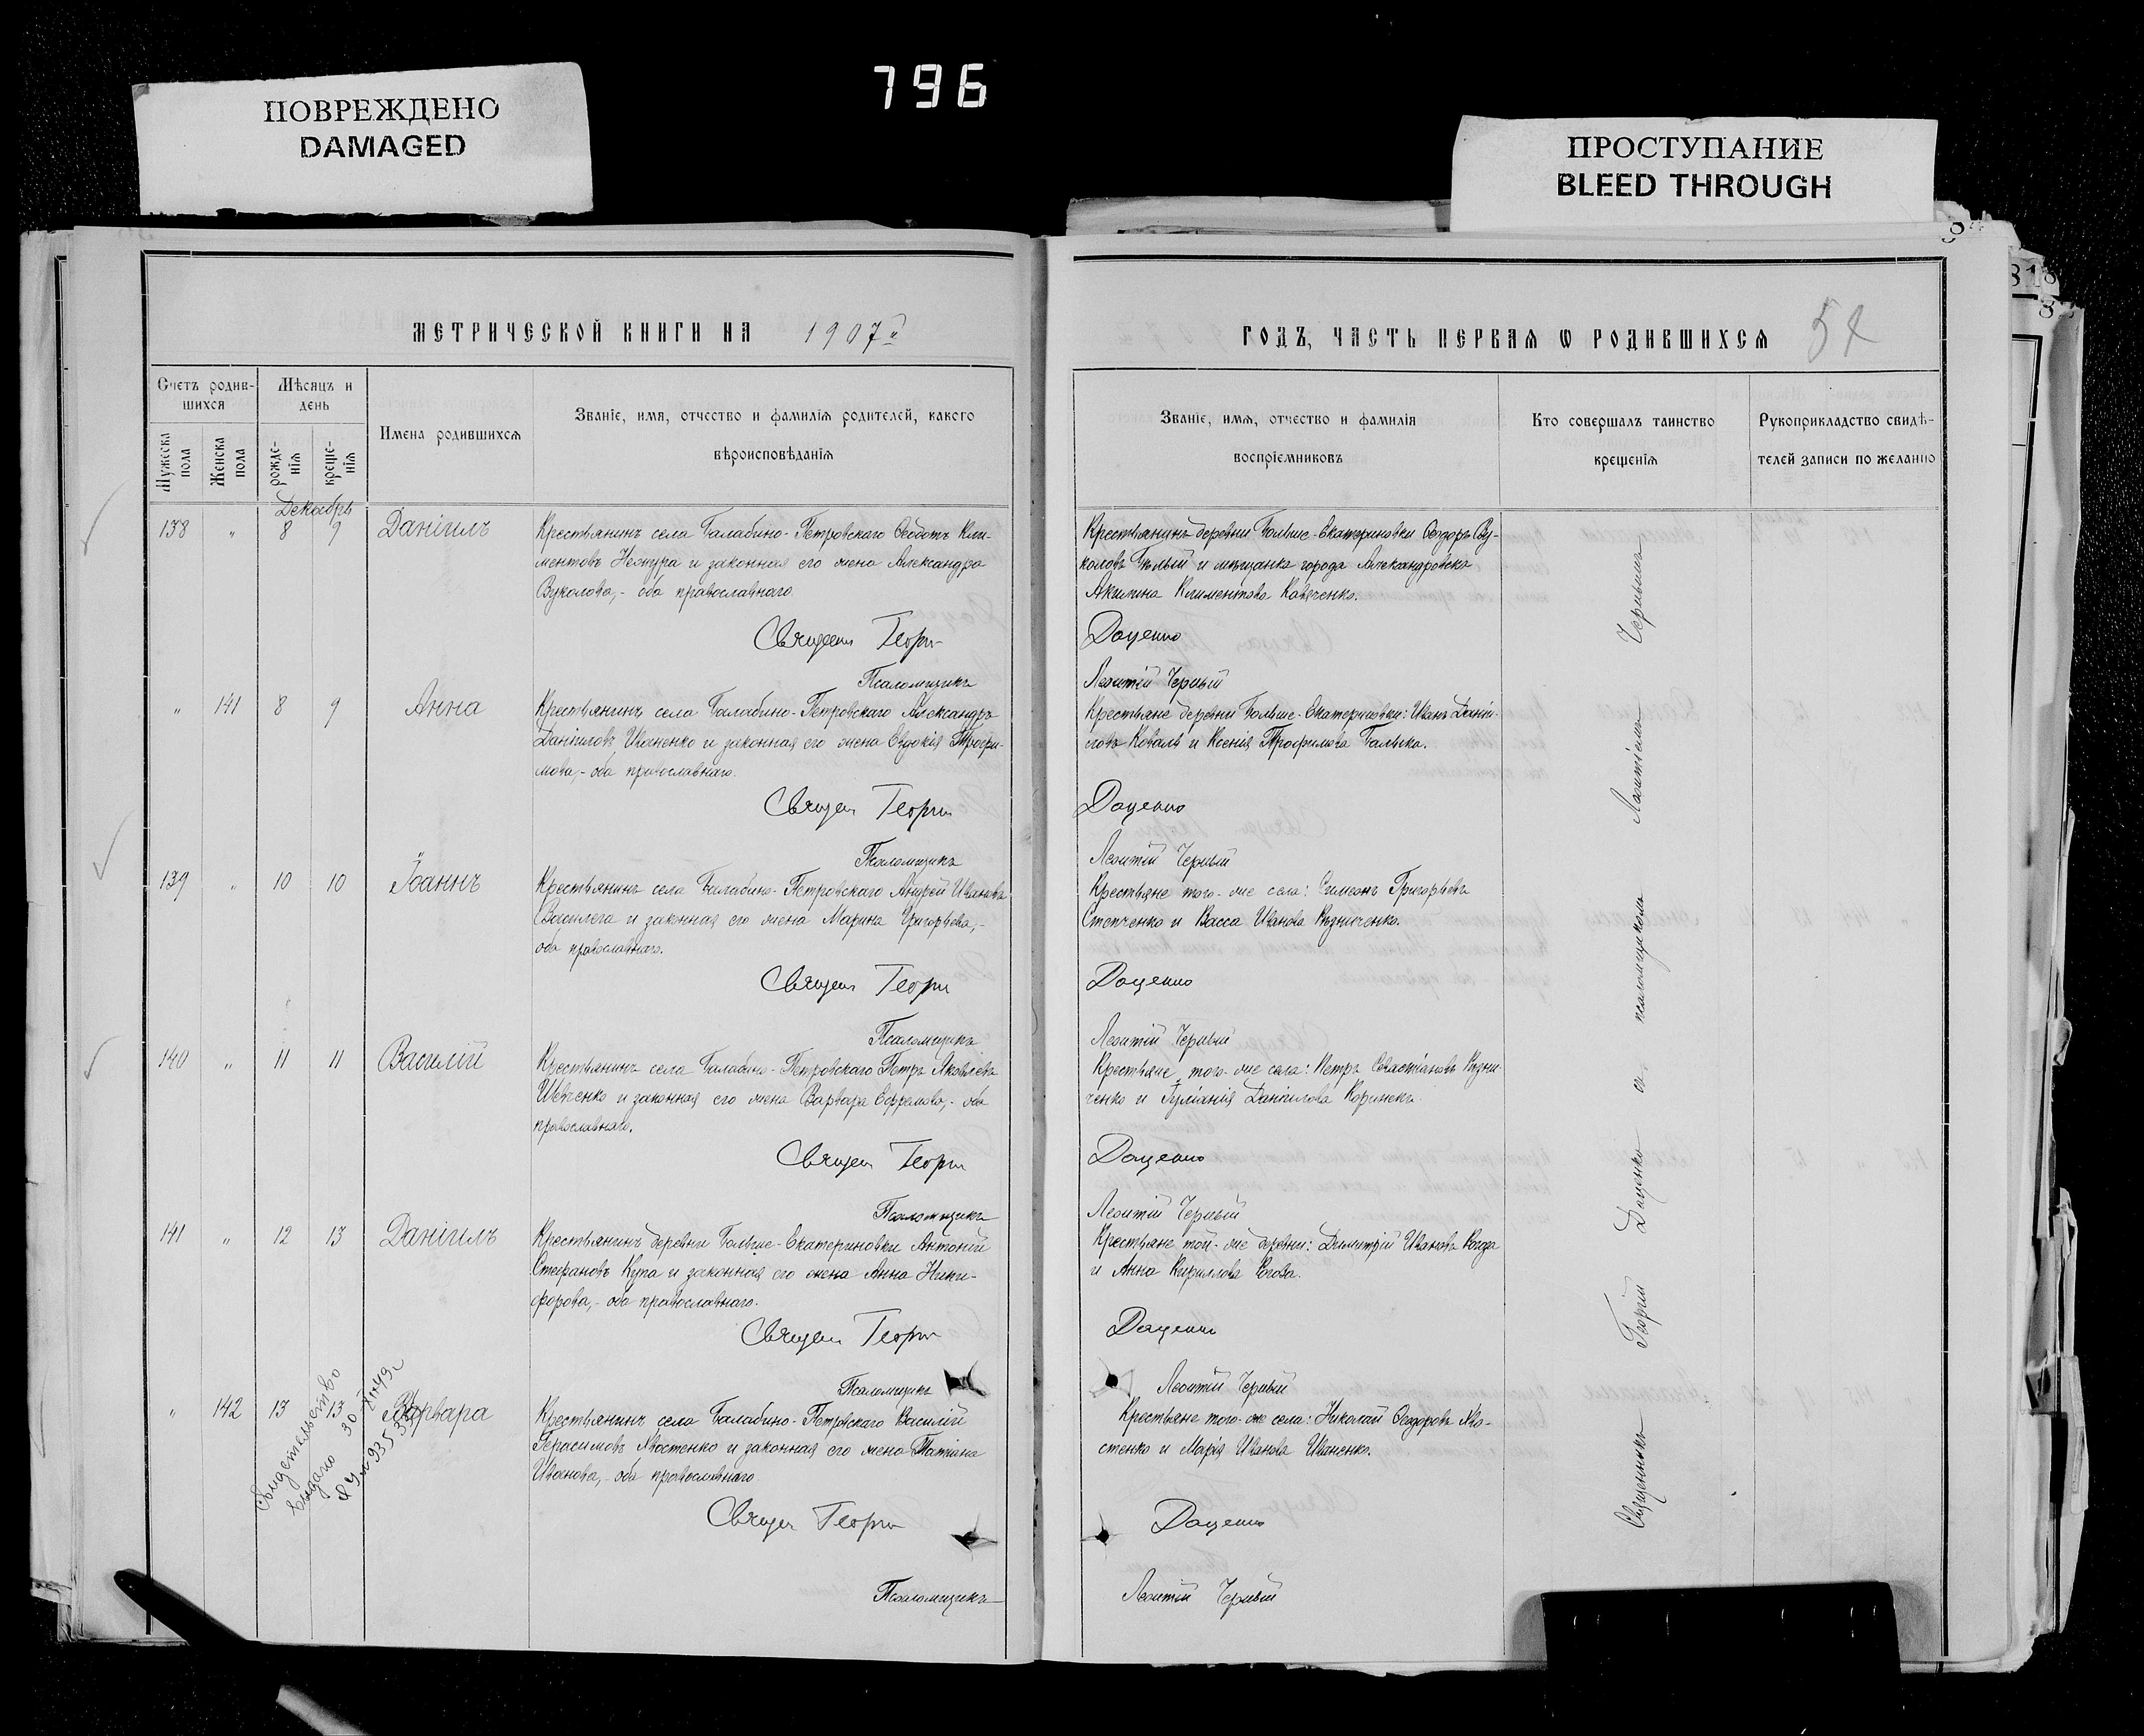 796
ПОВРЕЖДЕНО
DAMAGED
ПРОСТУПАНИЕ
BLEED THROUGH
МЕТРИЧЕСКОЙ КНИГИ НА 1907й
Счетъ родив-
шихся
Мѣсяцъ и
день
Мужеска
пола
Женска
пола
рожде-
нія
креще-
нія
Имена родившихся
Званіе, имя, отчество и фамилія родителей, какого
вѣроисповѣданія
Декабрь
138 " 8 9 Даніилъ
Крестьянинъ села Балабино-Петровскаго Ѳеодотъ Кли-
ментовъ и законная его жена Александра
Вуколова,- оба православнаго.
Священ Георгій
Псаломщикъ
" 141 8 9 Анна
Крестьянинъ села Балабино-Петровскаго Александръ
Даніиловъ Иваненко и законная его жена Евдокія Трофи-
мова,- оба православнаго.
Священ Георгій
Псаломщикъ
139 " 10 10 Іоаннъ
Крестьянинъ села Балабино-Петровскаго Андрей Ивановъ
и законная его жена Марина Григорьева,-
оба православнаго.
Священ Георгій
Псаломщикъ
140 " 11 11 Василій
Крестьянинъ села Балабино-Петровскаго Петръ Яковлевъ
Шевченко и законная его жена Варвара Ефремова,- оба
православнаго.
Священ Георгій
Псаломщикъ
141 " 12 13 Даніилъ
Крестьянинъ деревни Больше-Екатериновки Антоній
Стефановъ Купа и законная его жена Анна Ники-
форова,- оба православнаго.
Священ Георгій
Псаломщикъ
" 142 13 13 Варвара
Крестьянинъ села Балабино-Петровскаго Василій
Герасимовъ Хвостенко и законная его жена Татіана
Иванова,- оба православнаго.
Священ Георгій
Псаломщикъ
Свидетельство
выдано 30
ГОДЪ, ЧАСТЬ ПЕРВАЯ Ѡ РОДИВШИХСЯ
Званіе, имя, отчество и фамилія
воспріемниковъ
Кто совершалъ таинство
крещенія
Рукоприкладство свидѣ-
телей записи по желанію
Крестьянинъ деревни Больше-Екатериновки Ѳеодоръ Ву-
коловъ Бѣлый и мѣщанка города Александровска
Акилина Климентова
Доценко
Леонтій Черный
Крестьяне деревни Больше-Екатериновки: Иванъ Даніи-
ловъ Коваль и Ксенія Трофимова
Доценко
Леонтій Черный
Крестьяне того-же села: Симеонъ Григорьевъ
Степченко и Васса Иванова
Доценко
Леонтій Черный
Крестьяне того-же села: Петръ Севастіановъ
и Даніилова
Доценко
Леонтій Черный
Крестьяне той-же деревни: Димитрій Ивановъ
и Анна Кириллова
Доценко
Леонтій Черный
Крестьяне того-же села: Николай Ѳеодоровъ Хво-
стенко и Марія Иванова Иваненко.
Доценко
Леонтій Черный
Священникъ Георгій Доценко съ псаломщикомъ Леонтіемъ Чернымъ